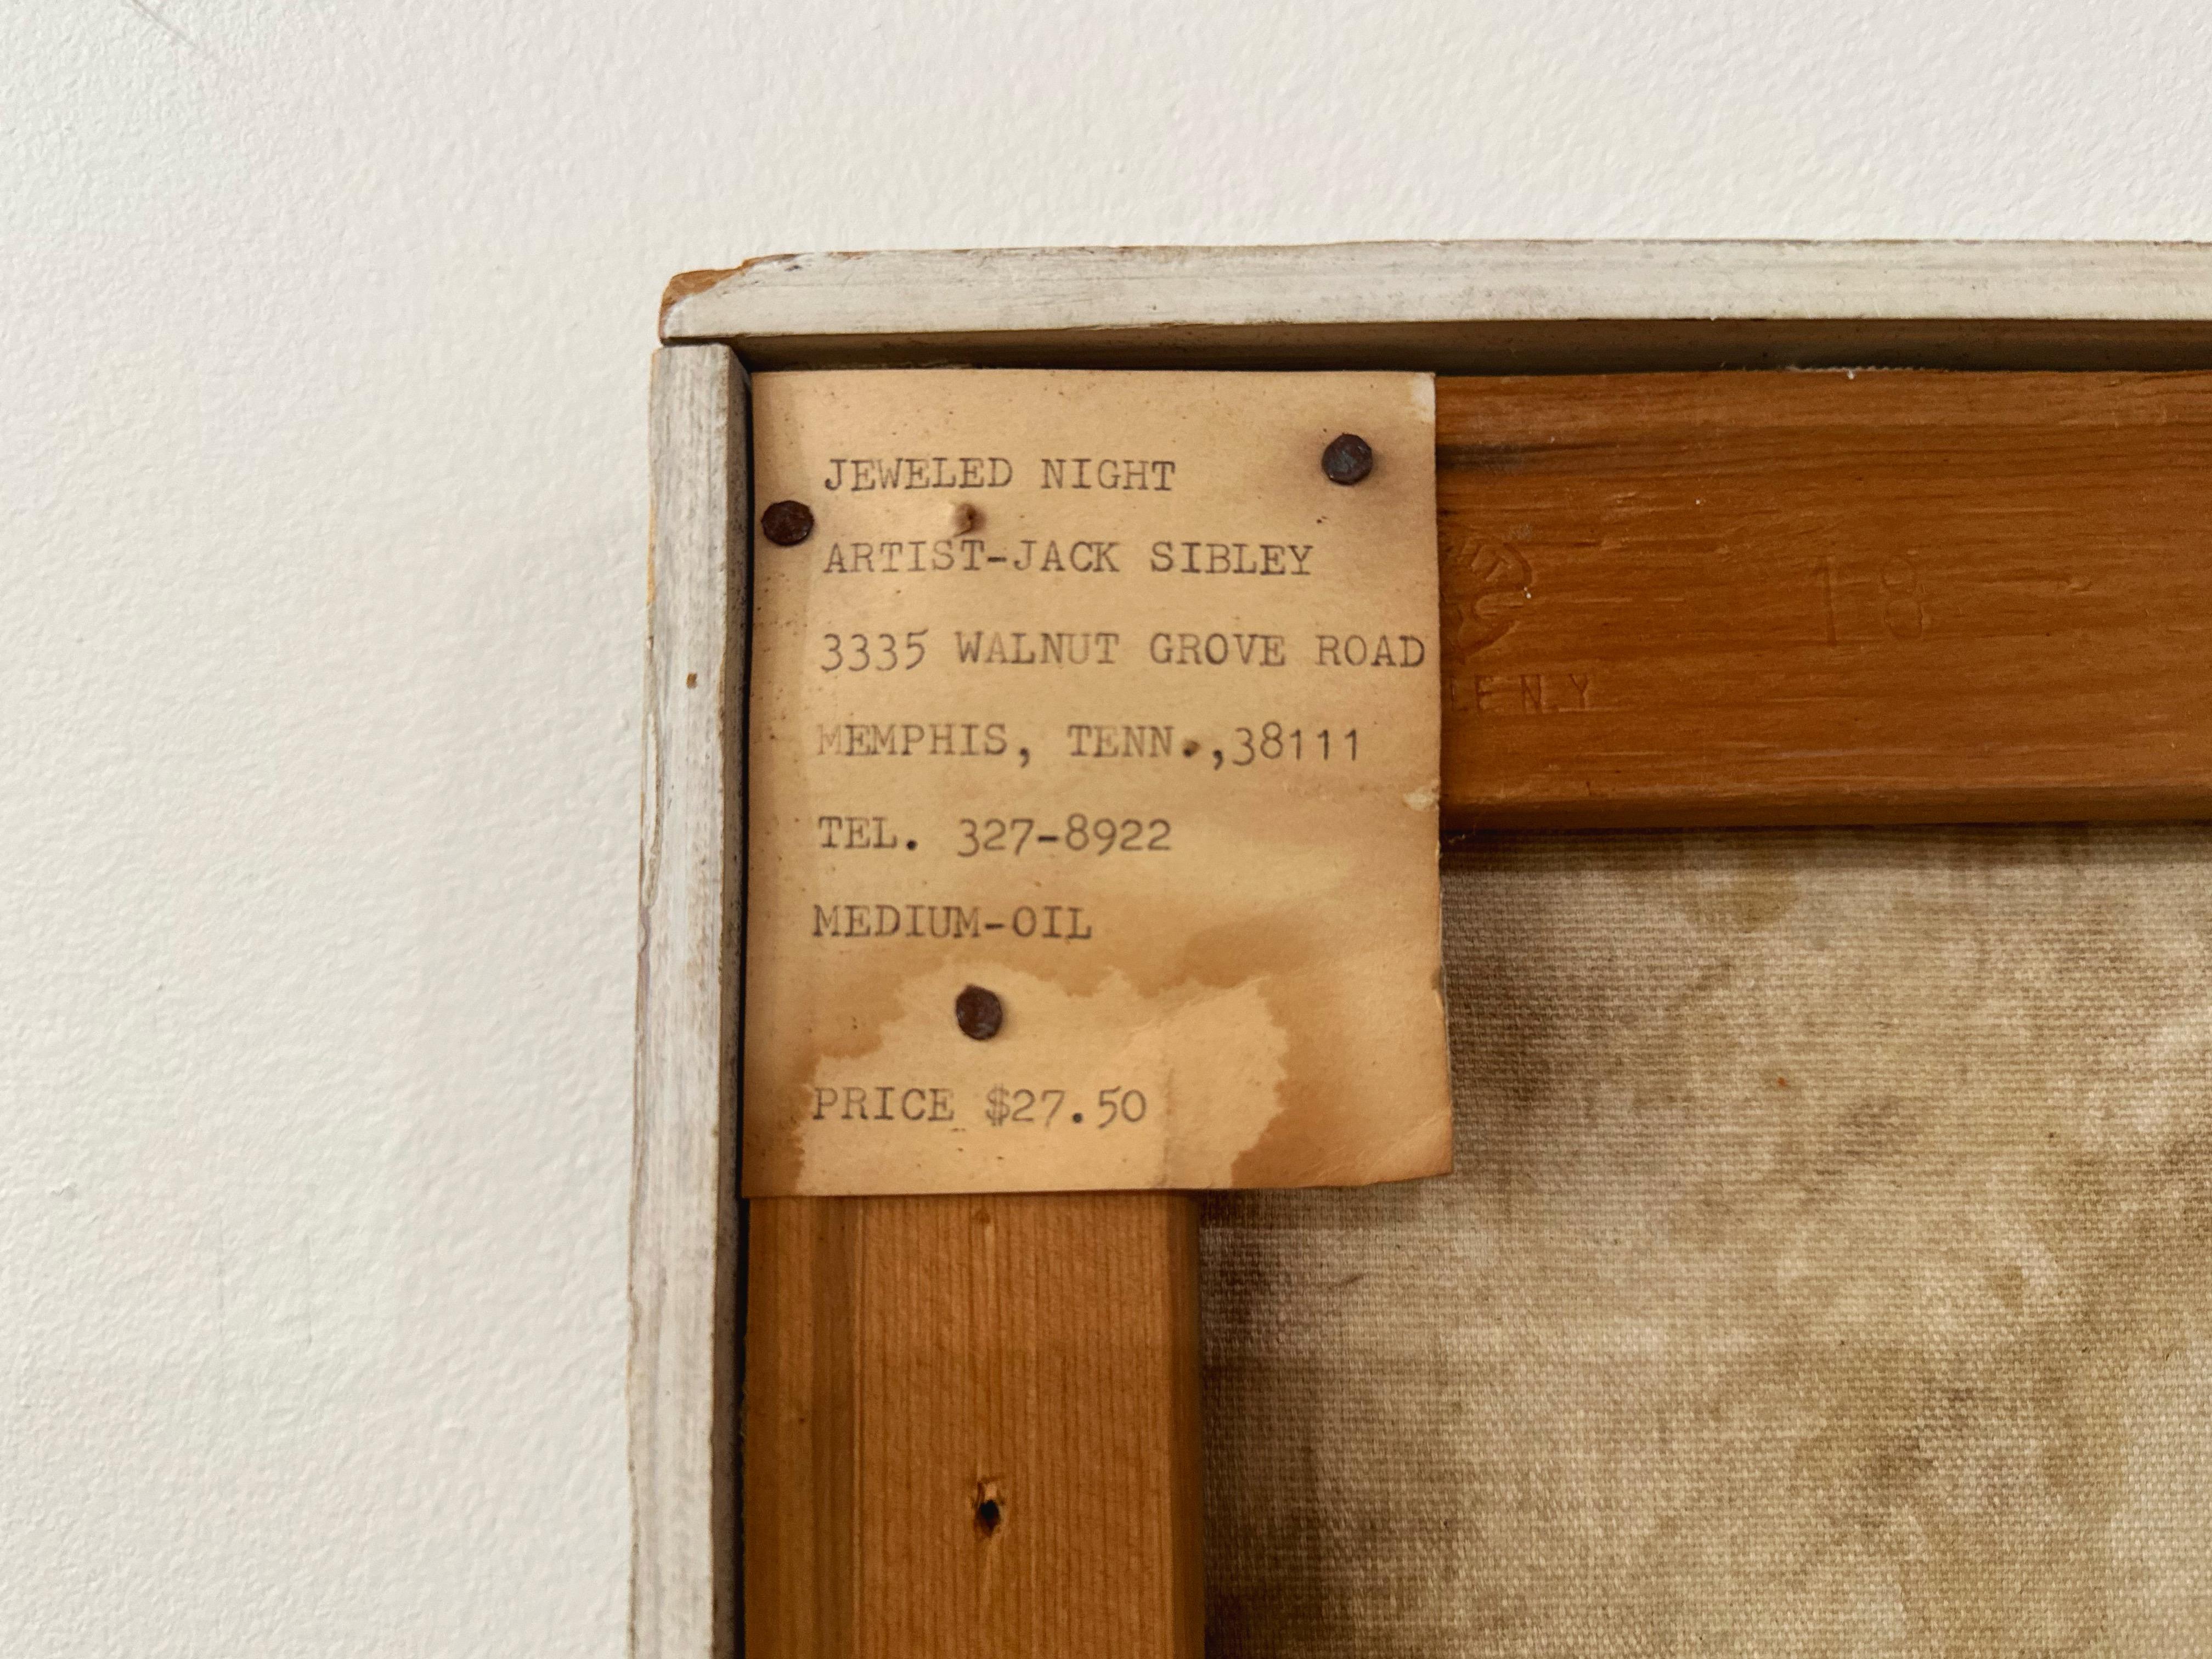 JEWELED NIGHT
ARTIST-JACK SIBLEY
3335 WALNUT GROVE ROAD
MEMPHIS, TENN.,38111
TEL. 327-8922
MEDIUM-OIL
PRICE $27.50
18
N.Y.